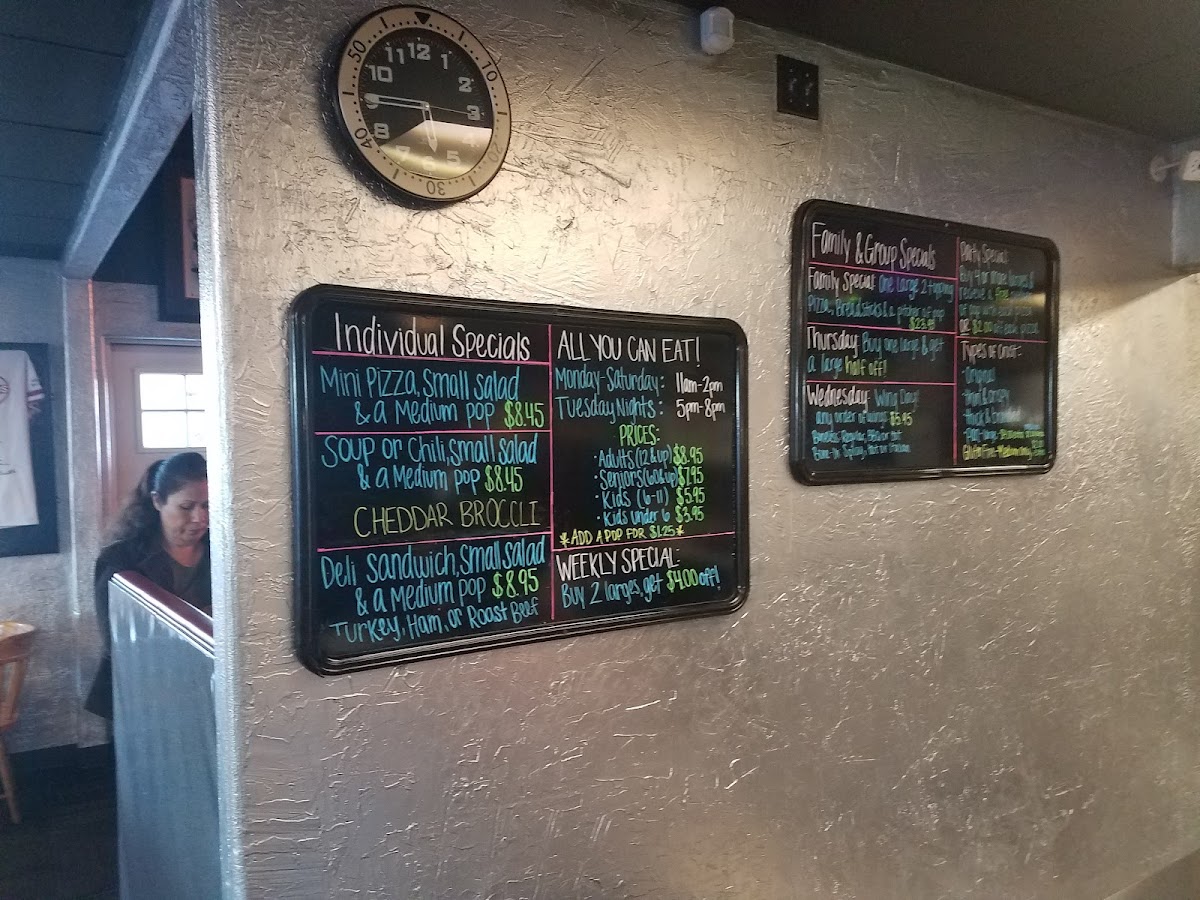 50
10
20
30
40
12
1
2
3
4
5
6
7
8
10
11
Individual Specials
Mini Pizza, Small Salad
& a Medium pop $8.45
Soup or Chili, Small Salad
& a Medium pop $8.45
CHEDDAR BROCCLI
Deli Sandwich, Small Salad
& a Medium pop $8.95
Turkey, Ham, or Roast Beef
ALL YOU CAN EAT!
Monday-Saturday: 11am-2pm
Tuesday Nights: 5pm-8pm
PRICES:
• Adults (12 & up) $8.95
• Seniors (60 & up) $7.95
• Kids (6-11) $5.95
• Kids under 6 $3.95
*ADD A POP FOR $1.25*
WEEKLY SPECIAL:
Buy 2 larges, get $4.00 off!
Family & Group Specials
Family Special: One Large 2 topping
Pizza, Breadsticks & a pitcher of pop
$23.95
Thursday: Buy one large & get
a large half off!
Wednesday: Wing Day!
any order of wings $5.95
Party Special:
Buy 4 or more larges &
receive a free
of pop with each pizza
OR $2.00 off each pizza
Types of Crust:
• Original
• Thin & crispy
• Thick &